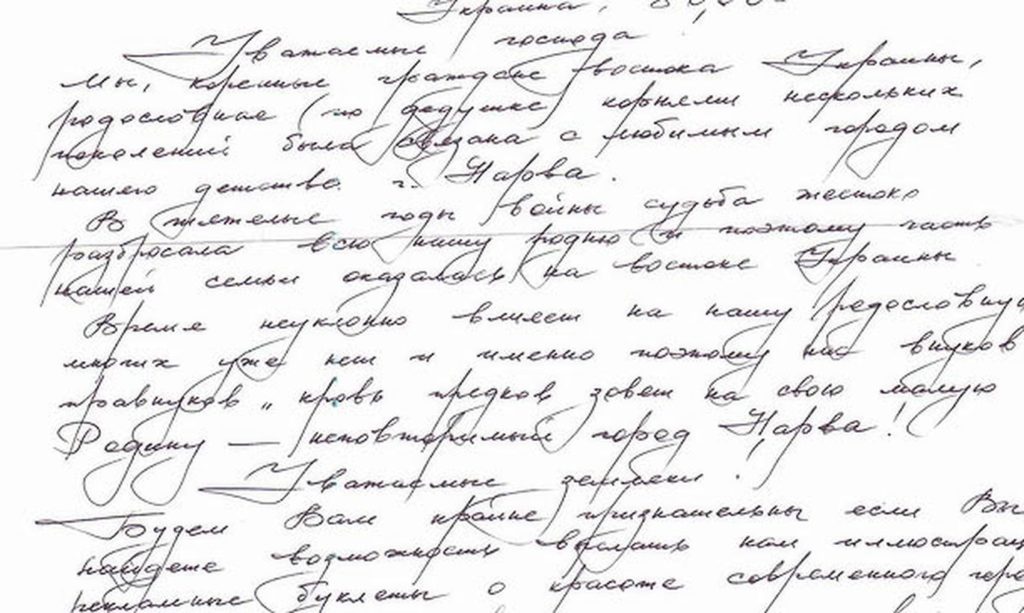 Украина,
Уважаемые господа
Мы, коренные граждане востока Украины,
родословные (по дедушке) корнями нескольких
поколений была связана с любимым городом
нашего детства г. Нарва.
В тяжелые годы войны судьба жестоко
разбросала всю нашу родню и поэтому часть
нашей семьи оказалась на востоке Украины
Время неуклонно влияет на нашу родословную
многих уже нет и именно поэтому нас внуков
правнуков „ кровь предков зовет на свою малую
Родину — неповторимый город Нарва!
Уважаемые земляки!
Будем Вам крайне признательны если Вы
найдете возможность выслать нам иллюстрац
рекламные буклеты о красоте современного горо